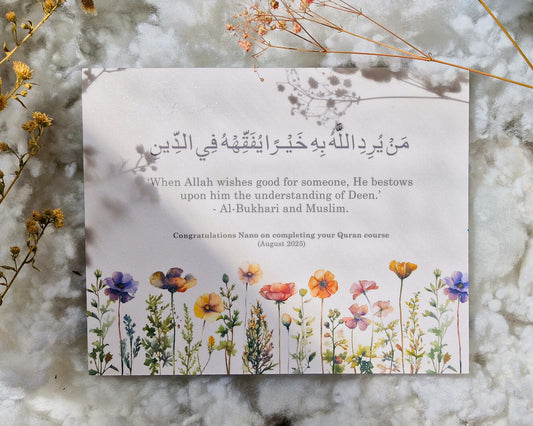 مَنْ يُرِدِ اللَّهُ بِهِ خَيْرًا يُفَقِّهْهُ فِي الدِّينِ
'When Allah wishes good for someone, He bestows
upon him the understanding of Deen.'
- Al-Bukhari and Muslim.
Congratulations Nano on completing your Quran course
(August 2025)